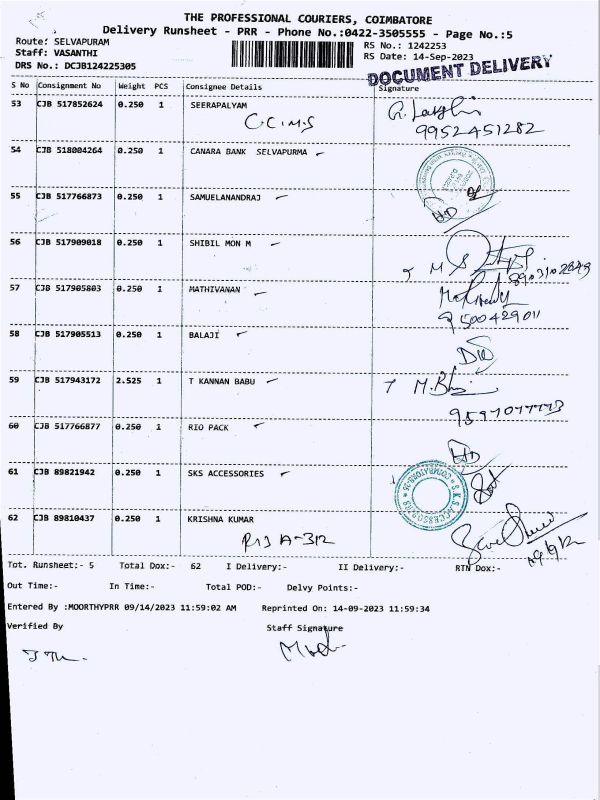 THE PROFESSIONAL COURIERS, COIMBATORE
Delivery Runsheet - PRR - Phone No.:0422-3505555 - Page No.:5
Route: SELVAPURAM
RS No.: 1242253
Staff: VASANTHI
RS Date: 14-Sep-2023
DRS No.: DCJB124225305
DOCUMENT DELIVERY
S No Consignment No Weight PCS Consignee Details Signature
53 CJB 517852624 0.250 1 SEERAPALYAM
C.C.I.M.S
9952451282
54 CJB 518004264 0.250 1 CANARA BANK SELVAPURMA
55 CJB 517766873 0.250 1 SAMUELANANDRAJ
56 CJB 517909018 0.250 1 SHIBIL MON M
57 CJB 517905803 0.250 1 MATHIVANAN
9500429011
58 CJB 517905513 0.250 1 BALAJI
59 CJB 517943172 2.525 1 T KANNAN BABU
60 CJB 517766877 0.250 1 RIO PACK
61 CJB 89821942 0.250 1 SKS ACCESSORIES
S.K.S ACCESSORIES
62 CJB 89810437 0.250 1 KRISHNA KUMAR
Tot. Runsheet:- 5 Total Dox:- 62 I Delivery:- II Delivery:- RTN Dox:-
Out Time:- In Time:- Total POD:- Delvy Points:-
Entered By :MOORTHYPRR 09/14/2023 11:59:02 AM Reprinted On: 14-09-2023 11:59:34
Verified By Staff Signature